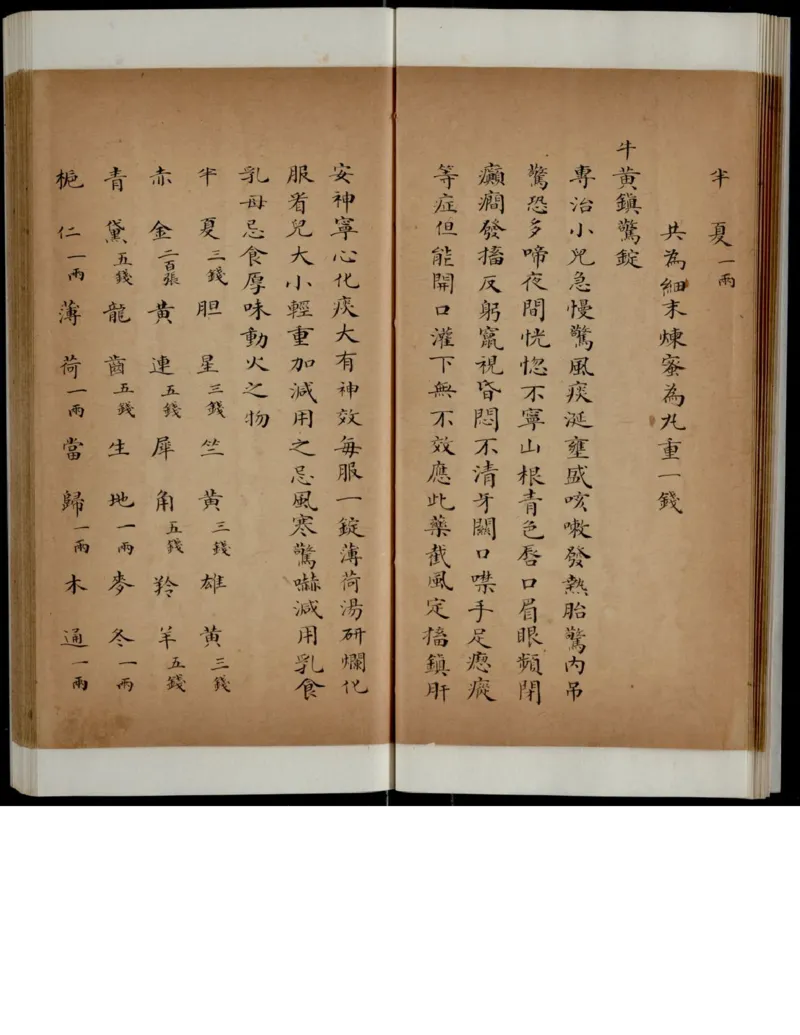 半夏一兩
共為細末煉蜜為丸重一錢
牛黃鎮驚錠
專治小兒急慢驚風痰涎壅盛咳嗽發熱胎驚內吊
驚恐多啼夜間恍惚不寧山根青色唇口眉眼頻閉
癲癎發搐反躬竄視昏悶不清牙關口噤手足瘛瘲
等症但能開口灌下無不效應此藥截風定搐鎮肝
安神寧心化痰大有神效每服一錠薄荷湯研爛化
服看兒大小輕重加減用之忌風寒驚嚇減用乳食
乳母忌食厚味動火之物
半夏三錢胆星三錢竺黃三錢雄黃三錢
赤金二百張黃連五錢犀角五錢羚羊五錢
青黛五錢龍齒五錢生地一兩麥冬一兩
梔仁一兩薄荷一兩當歸一兩木通一兩